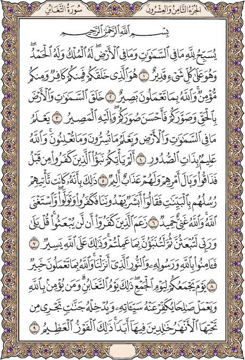 الجزء الثامن والعشرون سورة التغابن
بسم الله الرحمن الرحيم
يسبح لله ما في السموت وما في الأرض له الملك وله الحمد
وهو على كل شيء قدير ١ هو الذي خلقكم فمنكم كافر ومنكم
مؤمن والله بما تعملون بصير ٢ خلق السموت والأرض
بالحق وصوركم فأحسن صوركم وإليه المصير ٣ يعلم ما
في السموت والأرض ويعلم ما تسرون وما تعلنون والله
عليم بذات الصدور ٤ ألم يأتكم نبؤا الذين كفروا من قبل
فذاقوا وبال أمرهم ولهم عذاب أليم ٥ ذلك بأنه كانت تأتيهم
رسلهم بالبينت فقالوا أبشر يهدوننا فكفروا وتولوا واستغنى
الله والله غني حميد ٦ زعم الذين كفروا أن لن يبعثوا قل بلى
وربي لتبعثن ثم لتنبؤن بما عملتم وذلك على الله يسير ٧
فآمنوا بالله ورسوله والنور الذي أنزلنا والله بما تعملون خبير
٨ يوم يجمعكم ليوم الجمع ذلك يوم التغابن ومن يؤمن بالله
ويعمل صلحا يكفر عنه سيئاته ويدخله جنت تجري من
تحتها الأنهر خلدين فيها أبدا ذلك الفوز العظيم ٩